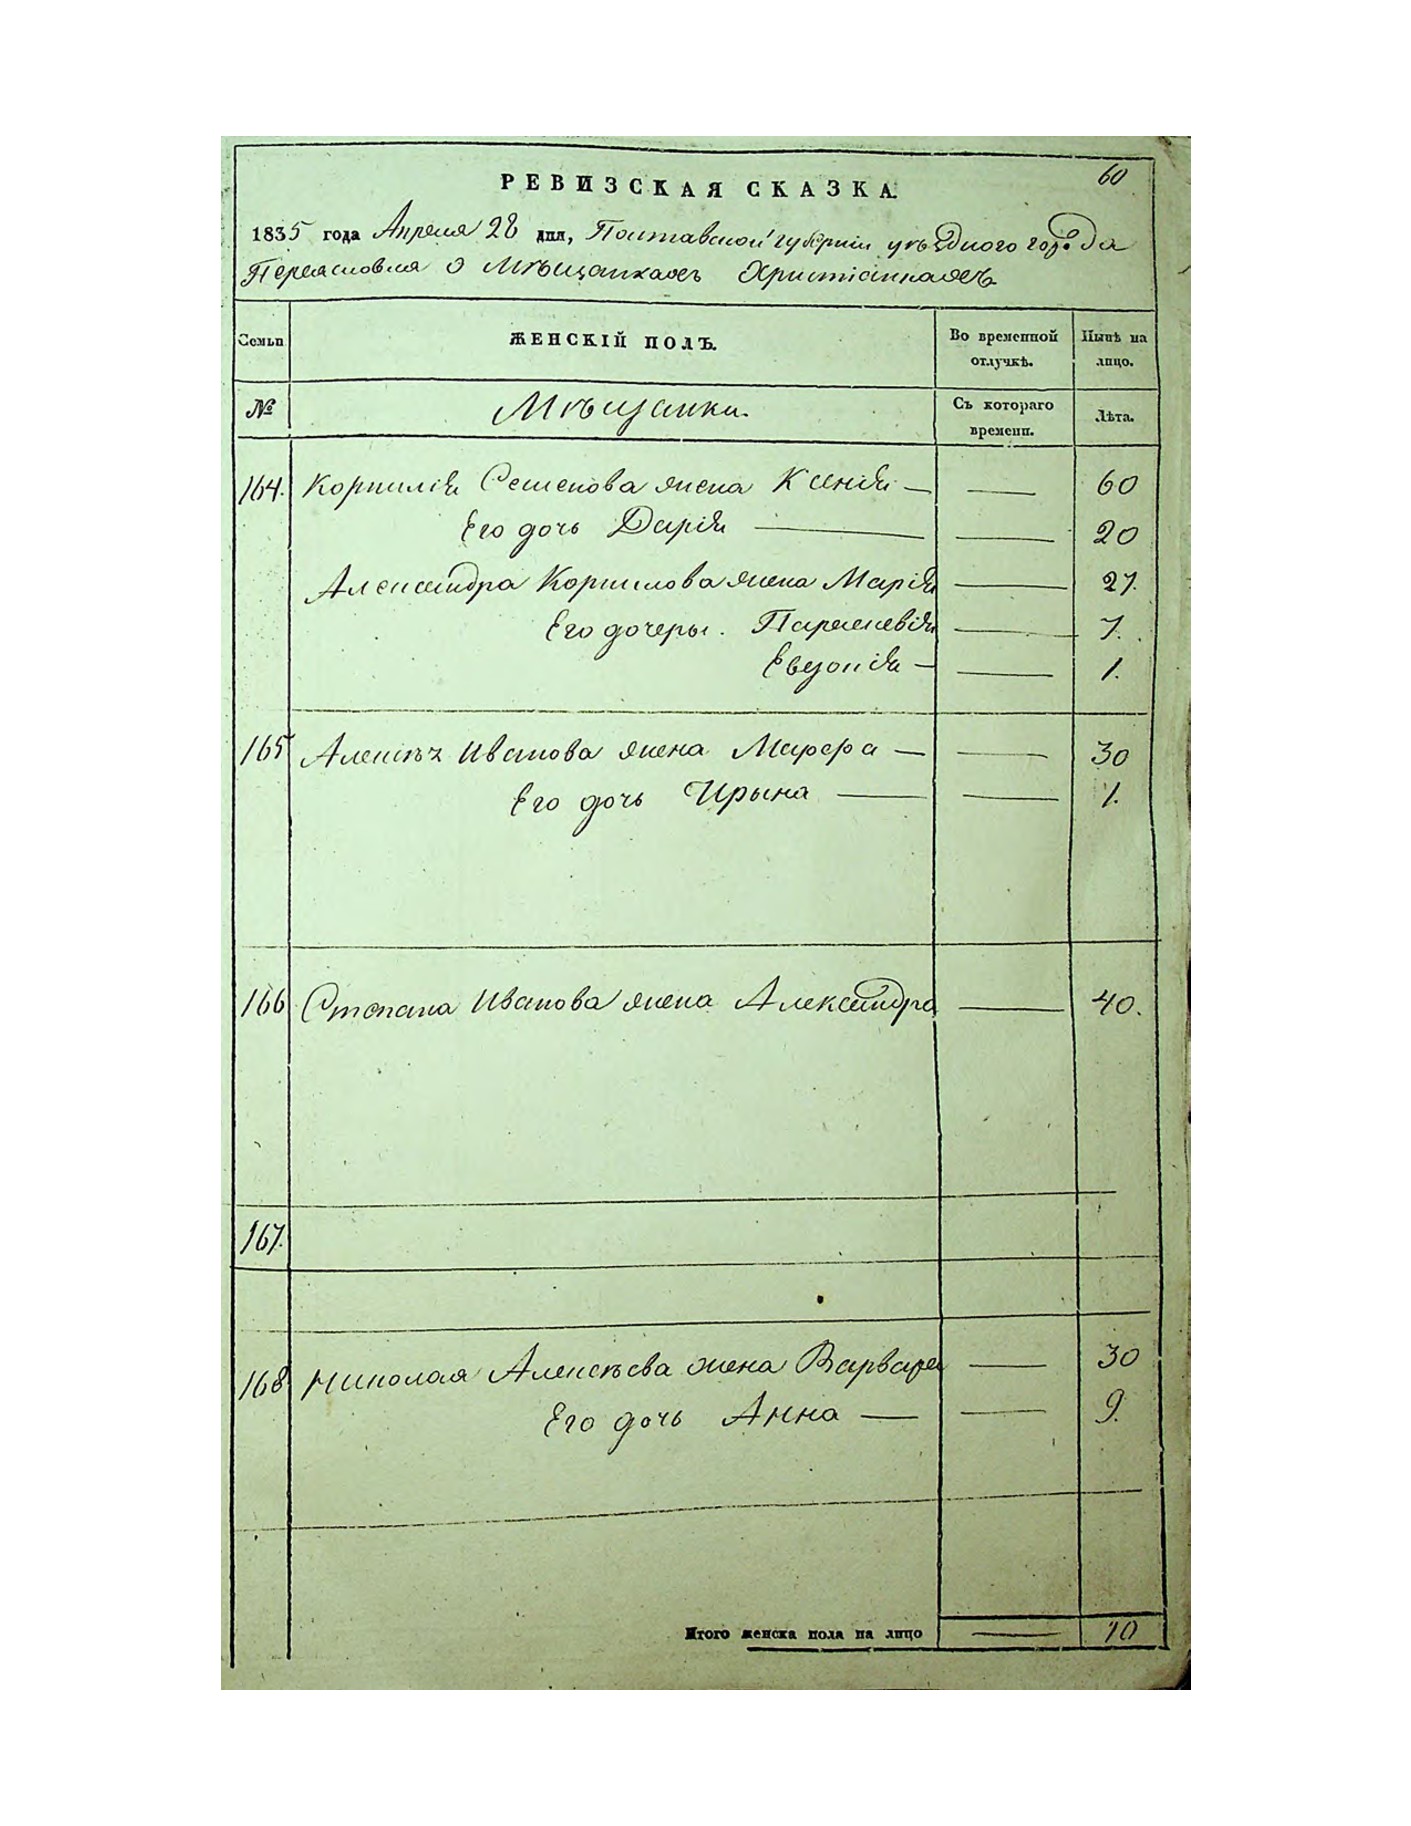 60
РЕВИЗСКАЯ СКАЗКА.
1835 года Апреля 28 дня, Полтавской губернии уѣздного города
Переяславля о Мѣщанкахъ Христіанкахъ
Семьи
ЖЕНСКІЙ ПОЛЪ.
Во временной отлучкѣ.
Нынѣ на лицо.
№
Мѣщанки.
Съ котораго времени.
Лѣта.
164. Корнилія Семенова жена Ксенія — — 60
Его дочь Дарія — — 20
Александра Корнилова жена Марія — 27.
Его дочеры. Параскевія — 7.
Евдокія — — 1.
165 Алексѣя Иванова жена Марфа — — 30
Его дочь Ирына — — 1.
166 Степана Иванова жена Александра — 40.
167.
168 Николая Алексѣева жена Варвара — 30
Его дочь Анна — — 9.
Итого женска пола на лицо — 10